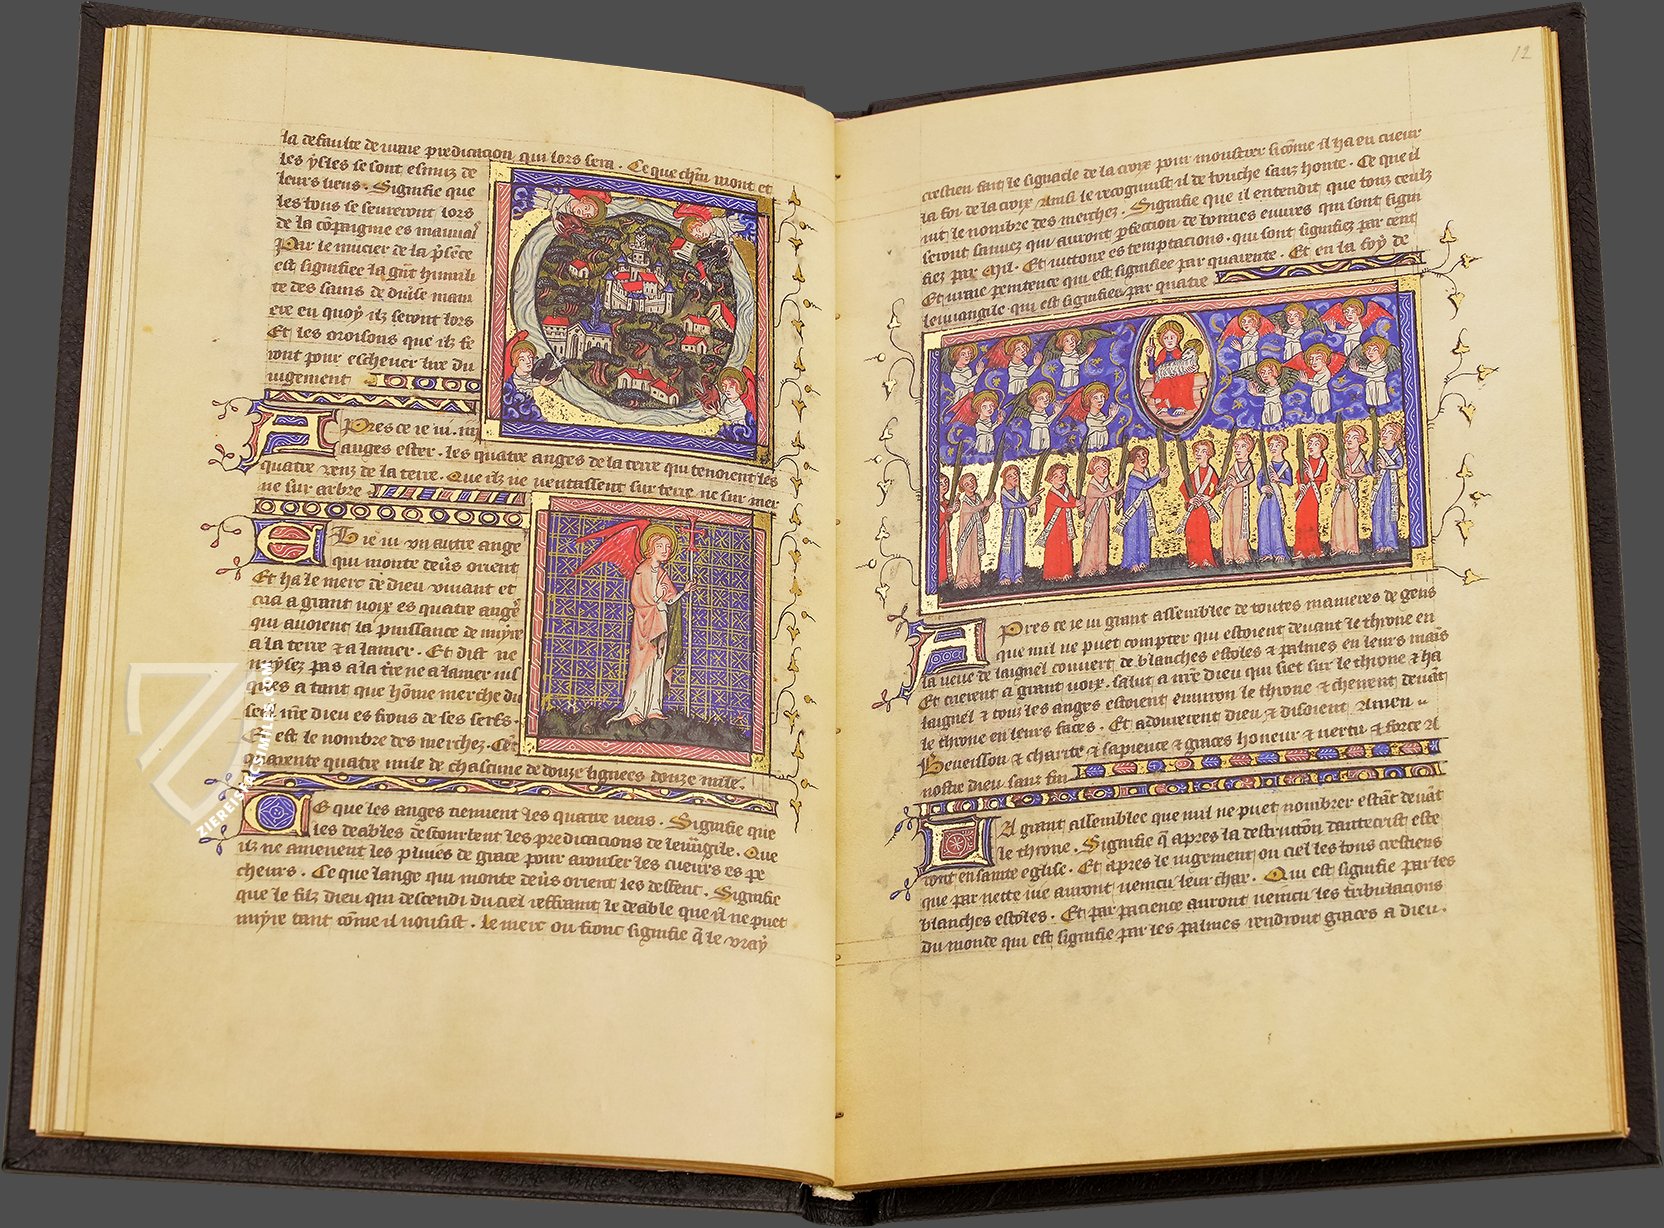 la defaulte de vraie predicacion qui lors sera . Ce que chũn mont et
les ysles se sont esmuz de
leurs lieus . Signifie que
les bons se seureront lors
de la cõpaignie es mauuai
Par le mucier de la p̃sete
est signifiee la gñt humili
te des sains de diuise mani
ere en quoy ilz seront lors
Et les oroisons que ilz fe
ront pour eschever lire du
iugement
Apres ce ie vi . iiij
anges ester . les quatre anges de la terre qui tenoient les
quatre venz de la terre . Que ilz ne ventassent sur terre ne sur mer
ne sur arbre
Et ie vi vn autre ange
qui monte deũs orient
Et ha le merc de dieu viuant et
cria a grant voix es quatre angẽ
qui auoient la puissance de nuyre
a la terre & a la mer . Et dist ne
nuysez pas a la t̃re ne a la mer ni
ques a tant que hõme merche du
seel n̄re dieu es frons de ses serfs .
Et est le nombre des merchez . Cẽt
quarente quatre mile de chascune de douze lignees douze mile .
Ce que les anges tiennent les quatre vens . Signifie que
les deables destourbent les predicacions de leuũgile . Que
ilz ne amenent les pluies de grace pour arouser les cueurs es pe
cheurs . Ce que lange qui monte deũs orient les deffent . Signifie
que le filz dieu qui descendi du ciel reffraint le deable que il ne puet
nuyre tant cõme il vousist . le merc ou front signifie q̃ le vray
12
crestien fait le signacle de la croix pour monstrer sicõme il ha en cueur
la foy de la croix Ainsi le recognoist il de bouche sanz honte . Ce que il
uit le nombre des merchez . Signifie que il entendit que touz ceulz
seront sauuez qui auront p̃fection de bonnes euures qui sont signi
fiez par Mil . Et victoire es temptacions . qui sont signifiez par cent
Et vraie penitence qui est signifiee par quarente . Et en la foy de
leuuangile qui est signifiee par quatre
Apres ce ie vi grant assemblee de toutes manieres de gens
que nul ne puet compter qui estoient deuant le throne en
la veue de laignel couuert de blanches estoles & palmes en leurs mais
Et crierent a grant voix . salut a n̄re dieu qui siet sur le throne & ha
laignel & touz les anges estoient enuiron le throne & cheirent deuãt
le throne en leurs faces . Et adourerent dieu & disoient Amen
Beneisson & charite & sapience & graces honeur & vertu & force a
nostre dieu sanz fin
La grant assemblee que nul ne puet nombrer estãt deuãt
le throne . Signifie q̃ apres la destruction dantecrist este
ront en sainte eglise . Et apres le iugement ou ciel les bons crestiens
que par nette vie auront vaincu leur char . Qui est signifie par les
blanches estoles . Et par pacience auront vaincu les tribulacions
du monde qui est signifie par les palmes rendront graces a dieu .
ZIEREIS FACSIMILES.COM